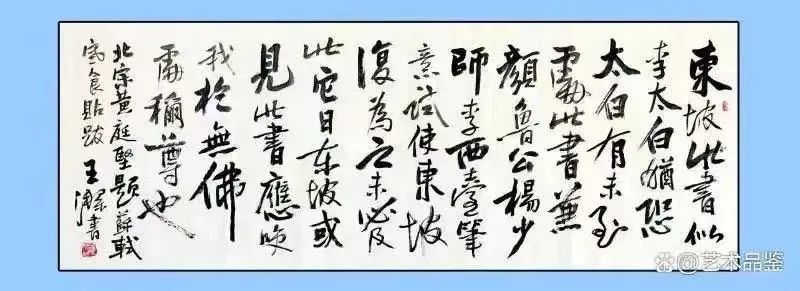 東坡此書似
李太白猶恐
太白有未到
處此書兼
顏魯公楊少
師李西臺筆
意試使東坡
復為之未必及
此它日東坡或
見此書應笑
我於無佛
處稱尊也
北宋黃庭堅題蘇軾
寒食貼跋 王澤書
艺术品鉴